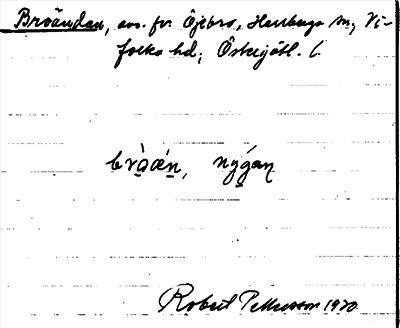 Broändan, avs. fr. Öjebro, Herrberga sn, Vi-
folka hd, Östergötl. l.
bròæn, nýgan
Robert Pettersson 1920